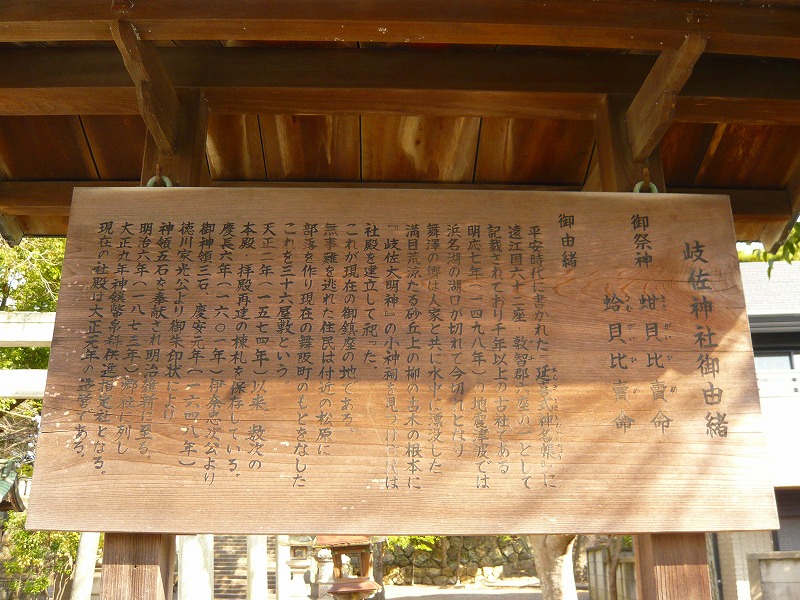 岐佐神社御由緒
御祭神 蚶貝比賣命
蛤貝比賣命
御由緒
平安時代に書かれた「延喜式神名帳」に
遠江国六十二座 敷智郡六座の一として
記載されており千年以上の古社である。
明応七年(一四九八年)の地震津波では
浜名湖の湖口が切れて今切れとなり
舞澤の郷は人家と共に水中に漂没した
満目荒涼たる砂丘上の柳の古木の根本に
『岐佐大明神』の小神祠を見つけ
社殿を建立して祀った。
これが現在の御鎮座の地である。
無事難を逃れた住民は付近の松原に
部落を作り現在の舞阪町のもとをなした
これを三十六屋敷という。
天正二年(一五七四年)以来 数次の
本殿・拝殿再建の棟札を保存している。
慶長六年(一六〇一年)伊奈忠次公より
御神領三石 慶安元年(一六四八年)
徳川家光公より御朱印状により
神領五石を奉献され明治維新に至る。
明治六年(一八七三年)郷社に列し
大正九年神饌幣帛料供進指定社となる。
現在の社殿は大正三年の造営である。